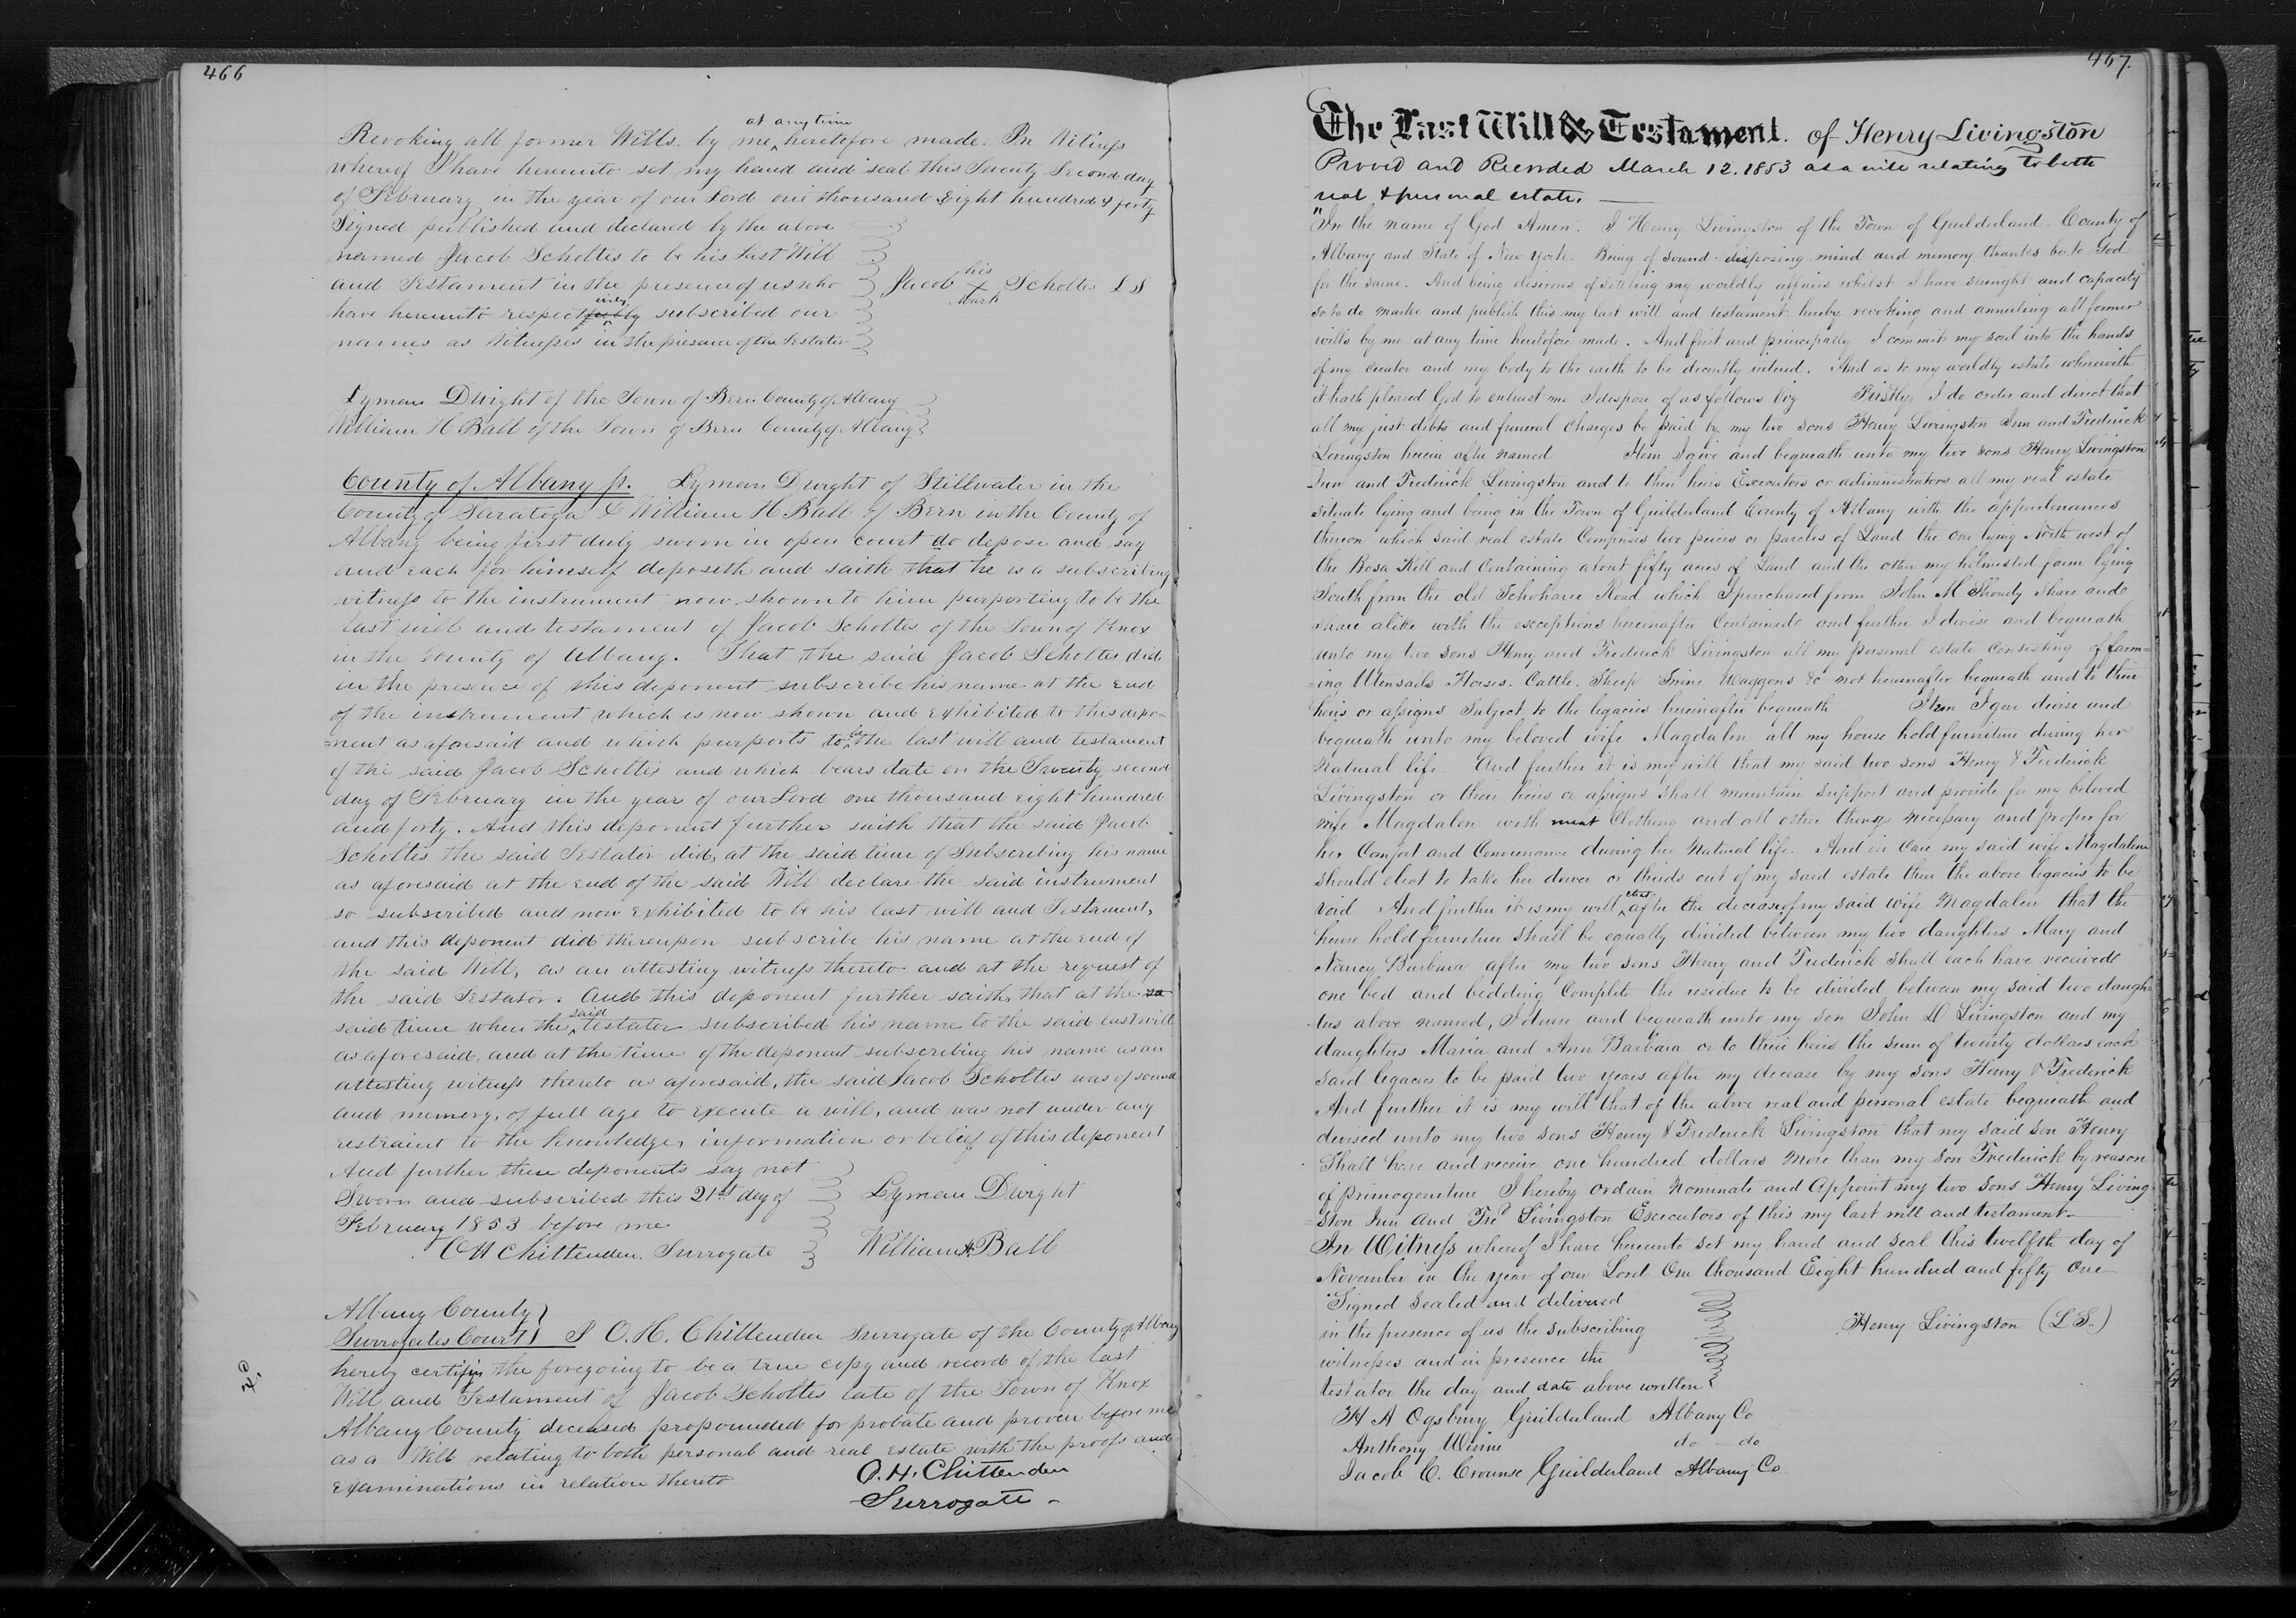 466
at any time
Revoking all former Wills. by me heretofore made. In Witness
whereof I have hereunto set my hand and seal this Twenty Second day
of February in the year of our Lord one thousand Eight hundred & forty
Signed published and declared by the above
named Jacob Scholtes to be his Last Will
and Testament in the presence of us who Jacob his X mark Scholtes L S
have hereunto respectively subscribed our
names as Witnesses in the presence of the Testator
Lyman Dwight of the Town of Bern County of Albany
William H Ball of the Town of Bern County of Albany
County of Albany ss. Lyman Dwight of Stillwater in the
County of Saratoga & William H Ball of Bern in the County of
Albany being first duly sworn in open court do depose and say
and each for himself deposeth and saith that he is a subscribing
witness to the instrument now shown to him purporting to be the
last will and testament of Jacob Scholtes of the Town of Knox
in the County of Albany. That the said Jacob Scholtes did
in the presence of this deponent subscribe his name at the End
of the instrument which is now shown and Exhibited to this depo-
=nent as aforesaid and which purports to be the last will and testament
of the said Jacob Scholtes and which bears date on the Twenty second
day of February in the year of our Lord one thousand eight hundred
and forty. And this deponent further saith that the said Jacob
Scholtes the said Testator did, at the said time of Subscribing his name
as aforesaid at the end of the said Will declare the said instrument
so subscribed and now exhibited to be his last will and Testament,
and this deponent did thereupon subscribe his name at the end of
the said Will, as an attesting witness thereto and at the request of
the said Testator. And this deponent further saith, that at the sa
said time when the said testator subscribed his name to the said last will
as aforesaid, and at the time of the deponent subscribing his name as an
attesting witness thereto as aforesaid, the said Jacob Scholtes was of sound
and memory, of full age to execute a will, and was not under any
restraint to the knowledge, information or belief of this deponent
And further these deponents say not
Sworn and subscribed this 21st day of Lyman Dwight
February 1853 before me
O H Chittenden. Surrogate William H. Ball
Albany County
Surrogates Court I O. H. Chittenden Surrogate of the County of Albany
hereby certify the foregoing to be a true copy and record of the last
Will and Testament of Jacob Scholtes late of the Town of Knox
Albany County deceased propounded for probate and proven before me
as a Will relating to both personal and real Estate with the proofs and
examinations in relation thereto O. H. Chittenden
Surrogate -
467.
The Last Will & Testament. of Henry Livingston
Proved and Recorded March 12. 1853 as a will relating to both
real & personal estate.
"In the name of God Amen. I Henry Livingston of the Town of Guilderland County of
Albany and State of New York. Being of sound disposing mind and memory thanks be to God
for the same. And being desirous of settling my worldly affairs whilst I have strength and capacity
so to do make and publish this my last will and testament hereby revoking and annuling all former
wills by me at any time heretofore made. And first and principally I commit my soul into the hands
of my creator and my body to the earth to be decently intered. And as to my worldly estate wherewith
it hath pleased God to entrust me I dispose of as follows Viz Firstly I do order and direct that
all my just debts and funeral charges be paid by my two sons Henry Livingston Jun and Frederick
Livingston herein after named Item I give and bequeath unto my two sons Henry Livingston
Jun and Frederick Livingston and to their heirs Executors or administrators all my real estate
situate lying and being in the Town of Guilderland County of Albany with the appertenances
thereon which said real estate Comprises two pieces or parcles of Land the one lying North west of
the Bosa Kill and Containing about fifty acres of Land and the other my holmested farm lying
South from the old Schoharie Road which I purchased from John M Shoudy Share and
share alike with the exceptions hereinafter Containeds and further I devise and bequeath
unto my two sons Henry and Frederick Livingston all my personal estate Consisting of farm=
=ing Utensails Horses. Cattle. Sheep Swine Waggons &c not hereinafter bequeath and to their
heirs or assigns Subject to the legacies hereinafter bequeath Item I give devise and
bequeath unto my beloved wife Magdalen all my house hold furniture during her
natural life And further it is my will that my said two sons Henry & Frederick
Livingston or their heirs or assigns shall maintain Support and provide for my beloved
wife Magdalen with meat Clothing and all other things necessary and proper for
her Comfort and Convenance during her Natural life. And in Case my said wife Magdalene
should elect to take her dower or thirds out of my said estate then the above legacies to be
void And further it is my will that after the decease of my said wife Magdalen that the
house hold furniture shall be equally divided between my two daughters Mary and
Nancy Barbara after my two sons Henry and Frederick shall each have received
one bed and bedding Complete the residue to be divided between my said two daugh-
-ters above named, I devise and bequeath unto my son John D Livingston and my
daughters Maria and Ann Barbara or to their heirs the sum of twenty dollars each
said legacies to be paid two years after my decease by my sons Henry & Frederick
And further it is my will that of the above real and personal estate bequeath and
devised unto my two sons Henry & Frederick Livingston that my said son Henry
Shall have and receive one hundred dollars more than my son Frederick by reason
of primogeniture I hereby ordain Nominate and Appoint my two sons Henry Living-
=ston Jun and Fred Livingston Executors of this my last will and testament
In Witness whereof I have hereunto set my hand and seal this twelfth day of
November in the year of our Lord One thousand Eight hundred and fifty One
Signed Sealed and delivered
in the presence of us the subscribing Henry Livingston (L S.)
witnesses and in presence the
testator the day and date above written
H A Ogsbury Guilderland Albany Co
Anthony do - do
Jacob C. Crounse Guilderland Albany Co